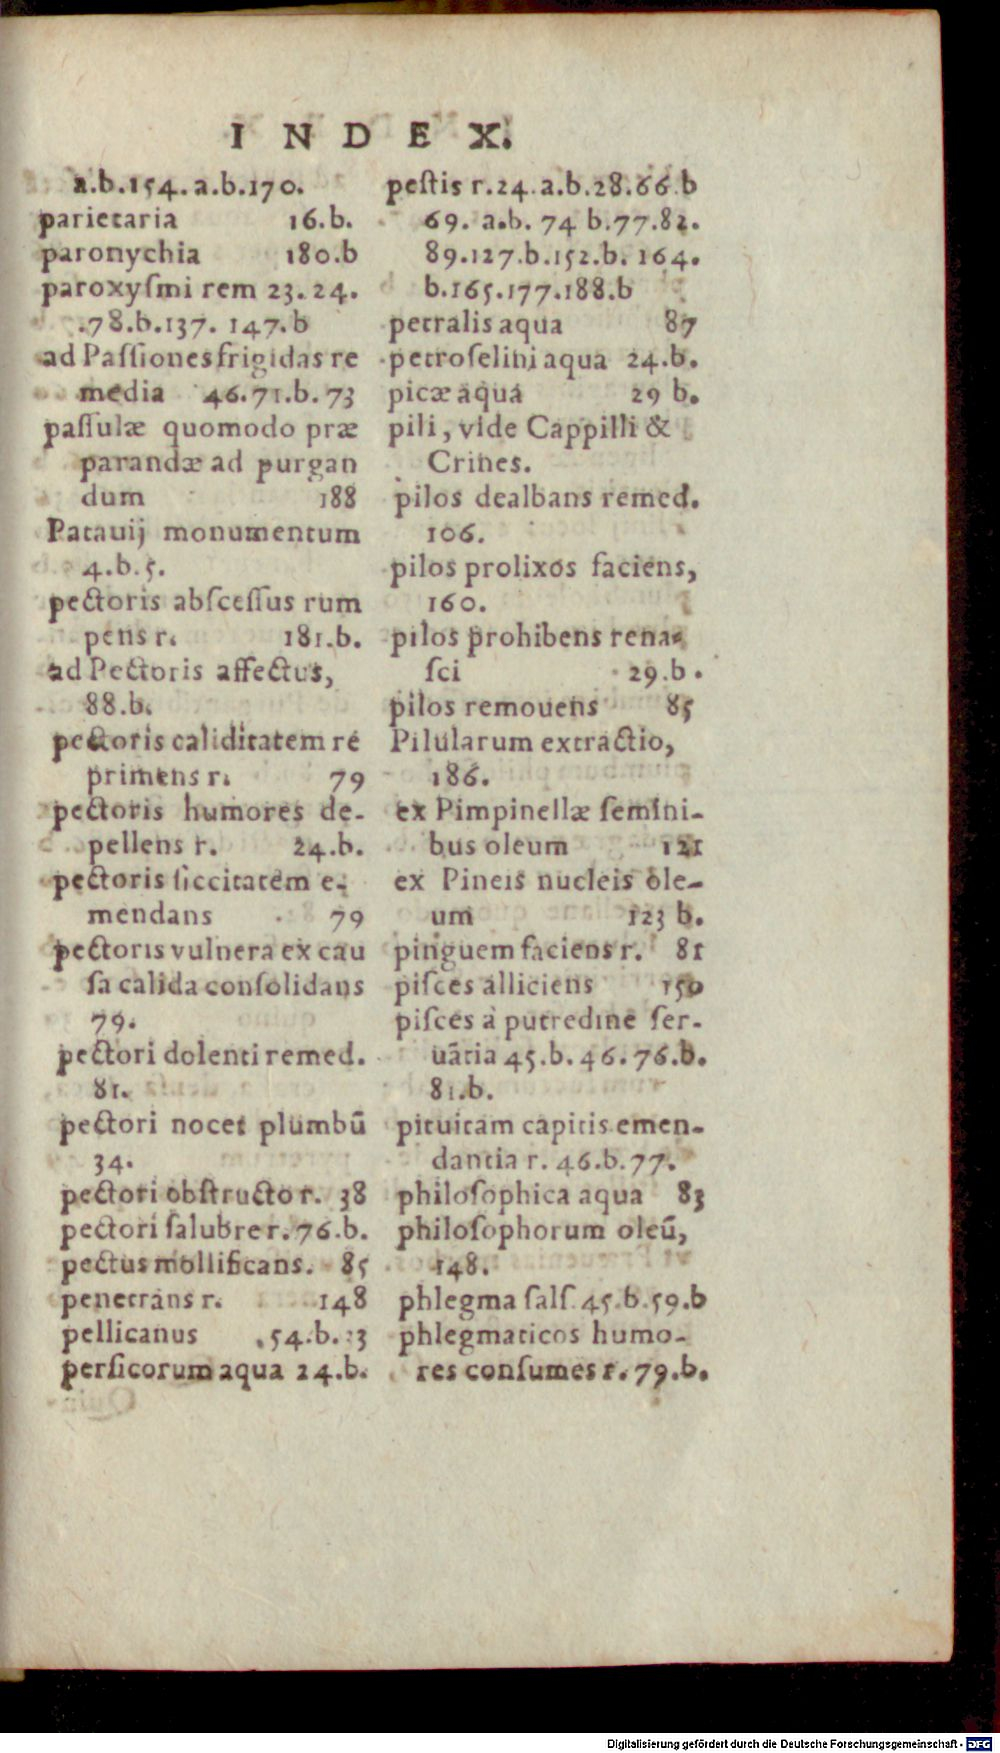 INDEX.
a.b.154. a.b.170.
parietaria 16.b.
paronychia 180.b
paroxyſmi rem 23. 24.
.78.b.137. 147.b
ad Paſſiones frigidas re
media 46.71.b. 73
paſſulæ quomodo præ
parandæ ad purgan
dum 188
Patauij monumentum
4.b.5.
pectoris abſceſſus rum
pens r. 181.b.
ad Pectoris affectus,
88.b.
pectoris caliditatem re
primens r. 79
pectoris humores de-
pellens r. 24.b.
pectoris ſiccitatem e-
mendans 79
pectoris vulnera ex cau
ſa calida conſolidans
79.
pectori dolenti remed.
81.
pectori nocet plumbū
34.
pectori obſtructo r. 38
pectori ſalubre r. 76.b.
pectus mollificans. 85
penetrans r. 148
pellicanus .54.b.
perſicorum aqua 24.b.
peſtis r.24. a.b.28.66.b
69. a.b. 74 b.77.82.
89.127.b.152.b. 164.
b.165.177.188.b
petralis aqua 87
petroſelini aqua 24.b.
picæ aqua 29 b.
pili, vide Cappilli &
Crines.
pilos dealbans remed.
106.
pilos prolixos faciens,
160.
pilos prohibens rena-
ſci 29.b.
pilos remouens 85
Pilularum extractio,
186.
ex Pimpinellæ ſemini-
bus oleum 121
ex Pineis nucleis ole-
um 123 b.
pinguem faciens r. 81
piſces alliciens 150
piſces à putredine ſer-
uātia 45.b. 46. 76.b.
81.b.
pituitam capitis emen-
dantia r. 46.b.77.
philoſophica aqua 83
philoſophorum oleū,
148.
phlegma ſalſ. 45.b.59.b
phlegmaticos humo-
res conſumes r. 79.b.
Digitalisierung gefördert durch die Deutsche Forschungsgemeinschaft - DFG